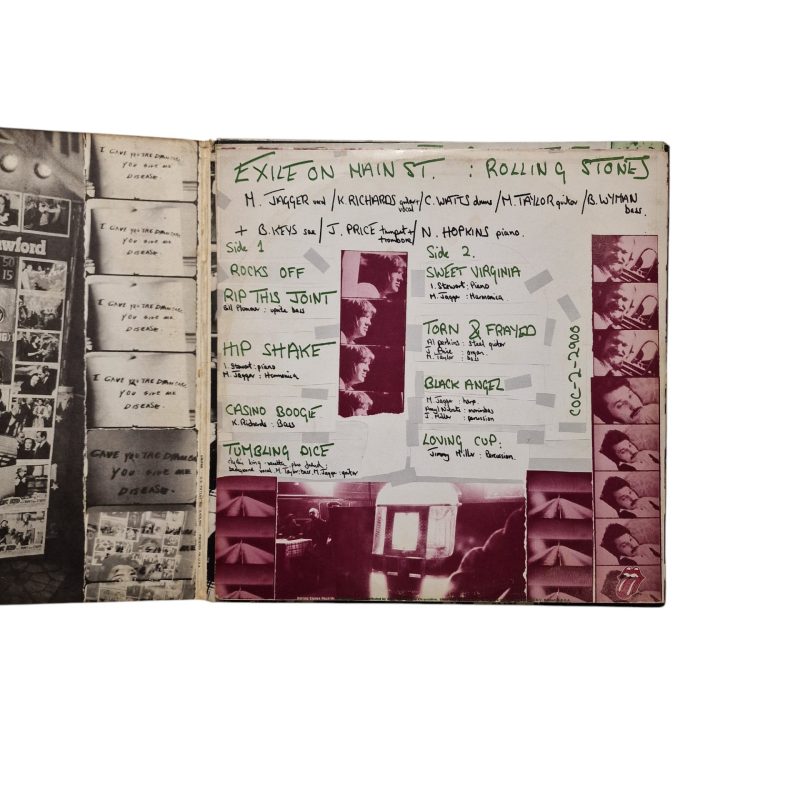 I GAVE YOU THE DIAMONDS
YOU GIVE ME
DISEASE.
I GAVE YOU THE DIAMONDS
YOU GIVE ME
DISEASE.
I GAVE YOU THE DIAMONDS
YOU GIVE ME
DISEASE.
I GAVE YOU THE DIAMONDS
YOU GIVE ME
DISEASE.
GAVE YOU THE DIAMONDS
YOU GIVE ME
DISEASE.
50
15
EXILE ON MAIN ST. : ROLLING STONES
M. JAGGER vocal / K. RICHARDS guitar + vocal / C. WATTS drums / M. TAYLOR guitar / B. WYMAN bass.
+ B. KEYS sax / J. PRICE trumpet + trombone / N. HOPKINS piano.
Side 1
ROCKS OFF
RIP THIS JOINT
Bill Plummer : uprite bass
HIP SHAKE
I. Stewart : piano
M. Jagger : Harmonica
CASINO BOOGIE
K. Richards : Bass
TUMBLING DICE
background vocal. M. Taylor: bass. M. Jagger : guitar
Side 2.
SWEET VIRGINIA
I. Stewart : Piano
M. Jagger : Harmonica
TORN & FRAYED
Al perkins : steel guitar
J. Price : organ
M. Taylor : bass
BLACK ANGEL
M. Jagger : harp
Amyl Nitrate : marimbas
J. Miller : percussion
LOVING CUP :
Jimmy Miller : Percussion.
COC-2-2900